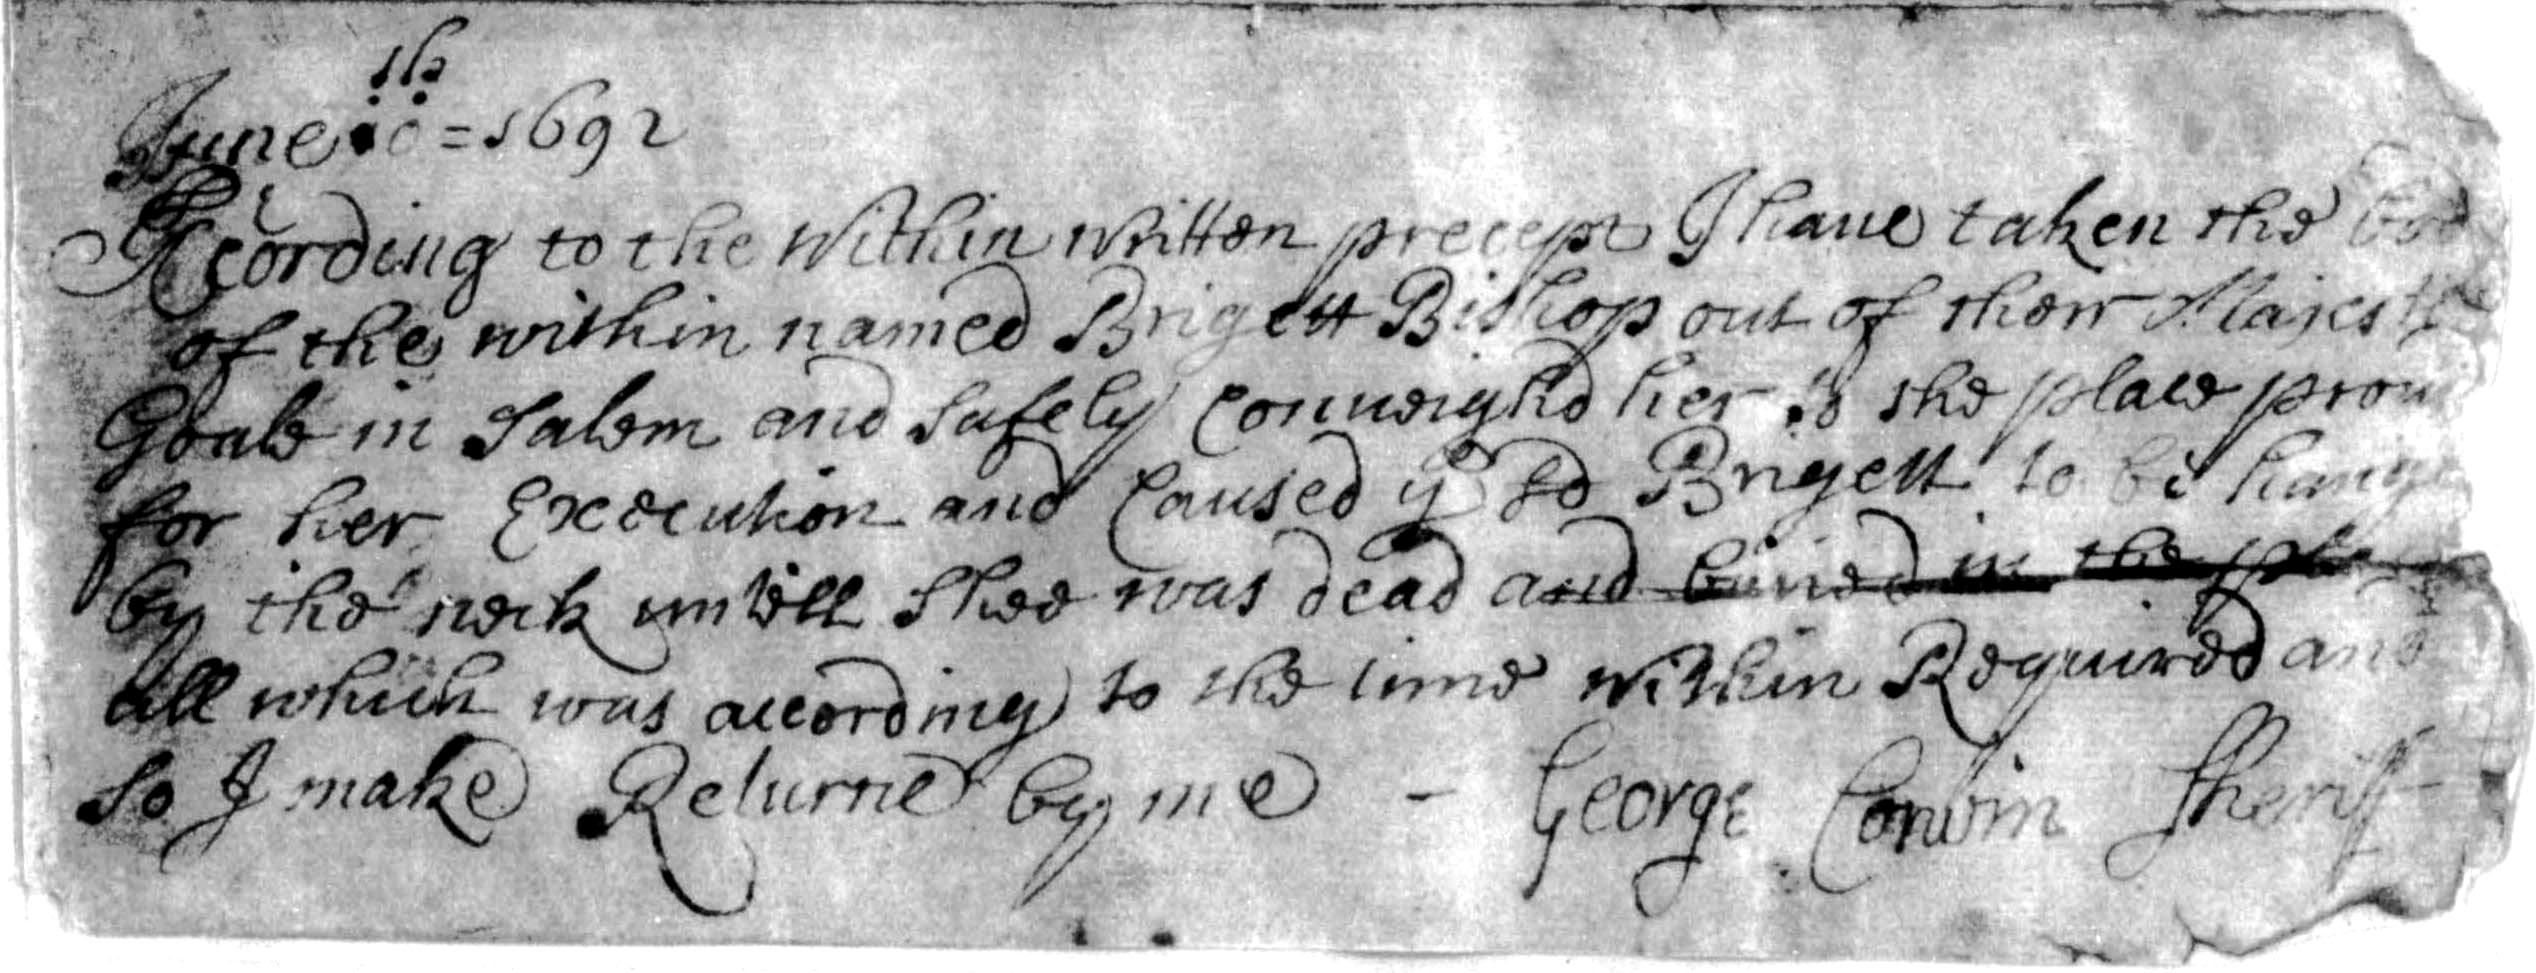 June 10th = 1692
Acording to the Within Written precept I haue taken the
of the within named Brigett Bishop out of their Majest
Goale in Salem and Safely Conueighd her to the place prou
for her Execution and Caused ye sd Brigett to be hang
by the neck untill Shee was dead and buried in the pla
all which was according to the time within Required and
So I make Returne by me - George Corwin Sheriff